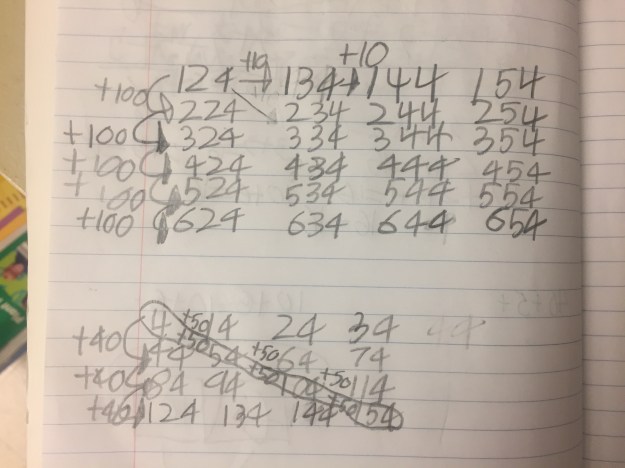 +10 +10
124 → 134 → 144 154
+100
224 234 244 254
+100
324 334 344 354
+100
424 434 444 454
+100
524 534 544 554
+100
624 634 644 654
4 +50 14 24 34 44
+40
44 +50 54 +50 64 74
+40
84 94 +50 104 +50 114
+40
124 134 144 +50 154